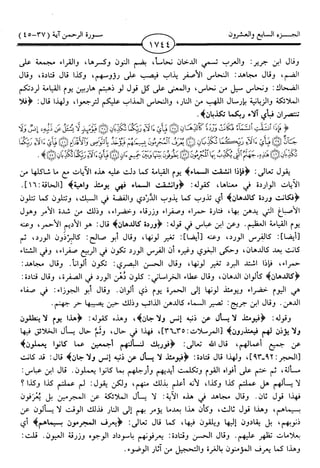 الجـــزء السابع والعشرون
سـورة الرحمن آية (٣٧-٤٥)
١٧٤٤
وقال ابن جرير: والعرب تسمي الدخان نحاساً، بضم النون وكسرها، والقراء مجمعة على
الضم، وقال مجاهد: النحاس الأصفر يذاب فيصب على رؤوسهم، وكذا قال قتادة، وقال
الضحاك: ونحاس سيل من نحاس، والمعنى على كل قول لو ذهبتم هاربين يوم القيامة لردتكم
الملائكة والزبانية بإرسال اللهب من النار، والنحاس المذاب عليكم لترجعوا، ولهذا قال: ﴿فلا
تنتصران فبأي آلاء ربكما تكذبان﴾.
﴿ فَإِذَا ٱنشَقَّتِ ٱلسَّمَآءُ فَكَانَتْ وَرْدَةً كَٱلدِّهَانِ فَبِأَىِّ ءَالَآءِ رَبِّكُمَا تُكَذِّبَانِ فَيَوْمَئِذٍ لَّا يُسْـَٔلُ عَن ذَنۢبِهِۦٓ إِنسٌ وَلَا
يقول تعالى: ﴿فإذا انشقت السماء﴾ يوم القيامة كما دلت عليه هذه الآيات مع ما شاكلها من
الآيات الواردة في معناها، كقوله: ﴿وانشقت السماء فهي يومئذ واهية﴾ [الحاقة: ١٦].
﴿فكانت وردة كالدهان﴾ أي تذوب كما يذوب الدُّرْدي والفضة في السبك، وتتلون كما تتلون
الأصباغ التي يدهن بها، فتارة حمراء وصفراء وزرقاء وخضراء، وذلك من شدة الأمر وهول
يوم القيامة العظيم. وعن ابن عباس في قوله: ﴿وردة كالدهان﴾ قال: هو الأديم الأحمر، وعنه
[أيضا]: كالفرس الورد، وعنه [أيضا]: تغير لونها، وقال أبو صالح: كالبِرْذَون الورد، ثم
كانت بعد كالدهان، وحكى البغوي وغيره أن الفرس الورد تكون في الربيع صفراء، وفي الشتاء
حمراء، فإذا اشتد البرد تغير لونها، وقال الحسن البصري: تكون ألواناً. وقال مجاهد:
﴿كالدهان﴾ كألوان الدهان، وقال عطاء الخراساني: كلون دُهن الورد في الصفرة، وقال قتادة:
هي اليوم خضراء ويومئذ لونها إلى الحمرة يوم ذي ألوان. وقال أبو الجوزاء: في صفاء
الدهن. وقال ابن جريج: تصير السماء كالدهن الذائب وذلك حين يصيبها حر جهنم.
وقوله: ﴿فيومئذ لا يسأل عن ذنبه إنس ولا جان﴾، وهذه كقوله: ﴿هذا يوم لا ينطقون
ولا يؤذن لهم فيعتذرون﴾ [المرسلات: ٣٥-٣٦]، فهذا في حال، وثَمَّ حال يسأل الخلائق فيها
عن جميع أعمالهم، قال الله ﴿فوربك لنسألنهم أجمعين عما كانوا يعملون﴾
[الحجر: ٩٢-٩٣]، ولهذا قال قتادة: ﴿فيومئذ لا يسأل عن ذنبه إنس ولا جان﴾ قال: قد كانت
مسألة، ثم ختم على أفواه القوم وتكلمت أيديهم وأرجلهم بما كانوا يعملون. قال ابن عباس:
لا يسألهم هل عملتم كذا وكذا، لأنه أعلم بذلك منهم، ولكن يقول: لم عملتم كذا وكذا؟
فهذا قول ثان. وقال مجاهد في هذه الآية: لا يسأل الملائكة عن المجرمين بل يُعْرَفون
بسيماهم، وهذا قول ثالث، وكأن هذا بعدما يؤمر بهم إلى النار فذلك الوقت لا يسألون عن
ذنوبهم، بل يقادون إليها ويلقون فيها، كما قال تعالى: ﴿يعرف المجرمون بسيماهم﴾ أي
بعلامات تظهر عليهم. وقال الحسن وقتادة: يعرفونهم باسوداد الوجوه وزرقة العيون. قلت:
وهذا كما يعرف المؤمنون بالغرة والتحجيل من آثار الوضوء.